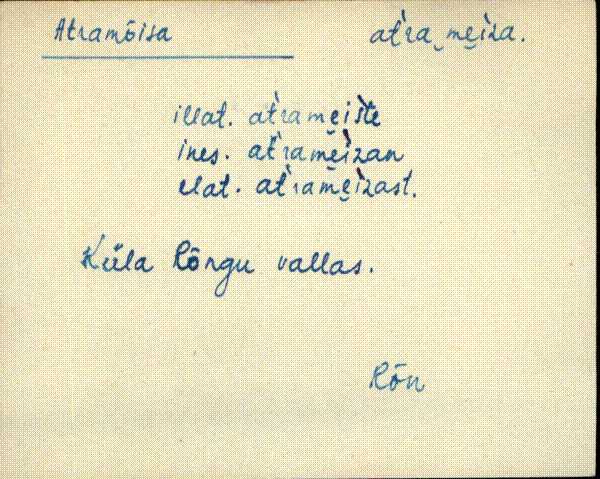 Atramõisa at̀ra‿me̮ìza.
illat. at̀rame̮ìste
ines. at̀rame̮ìzan
elat. at̀rame̮ìzast.
Küla Rõngu vallas.
Rõn